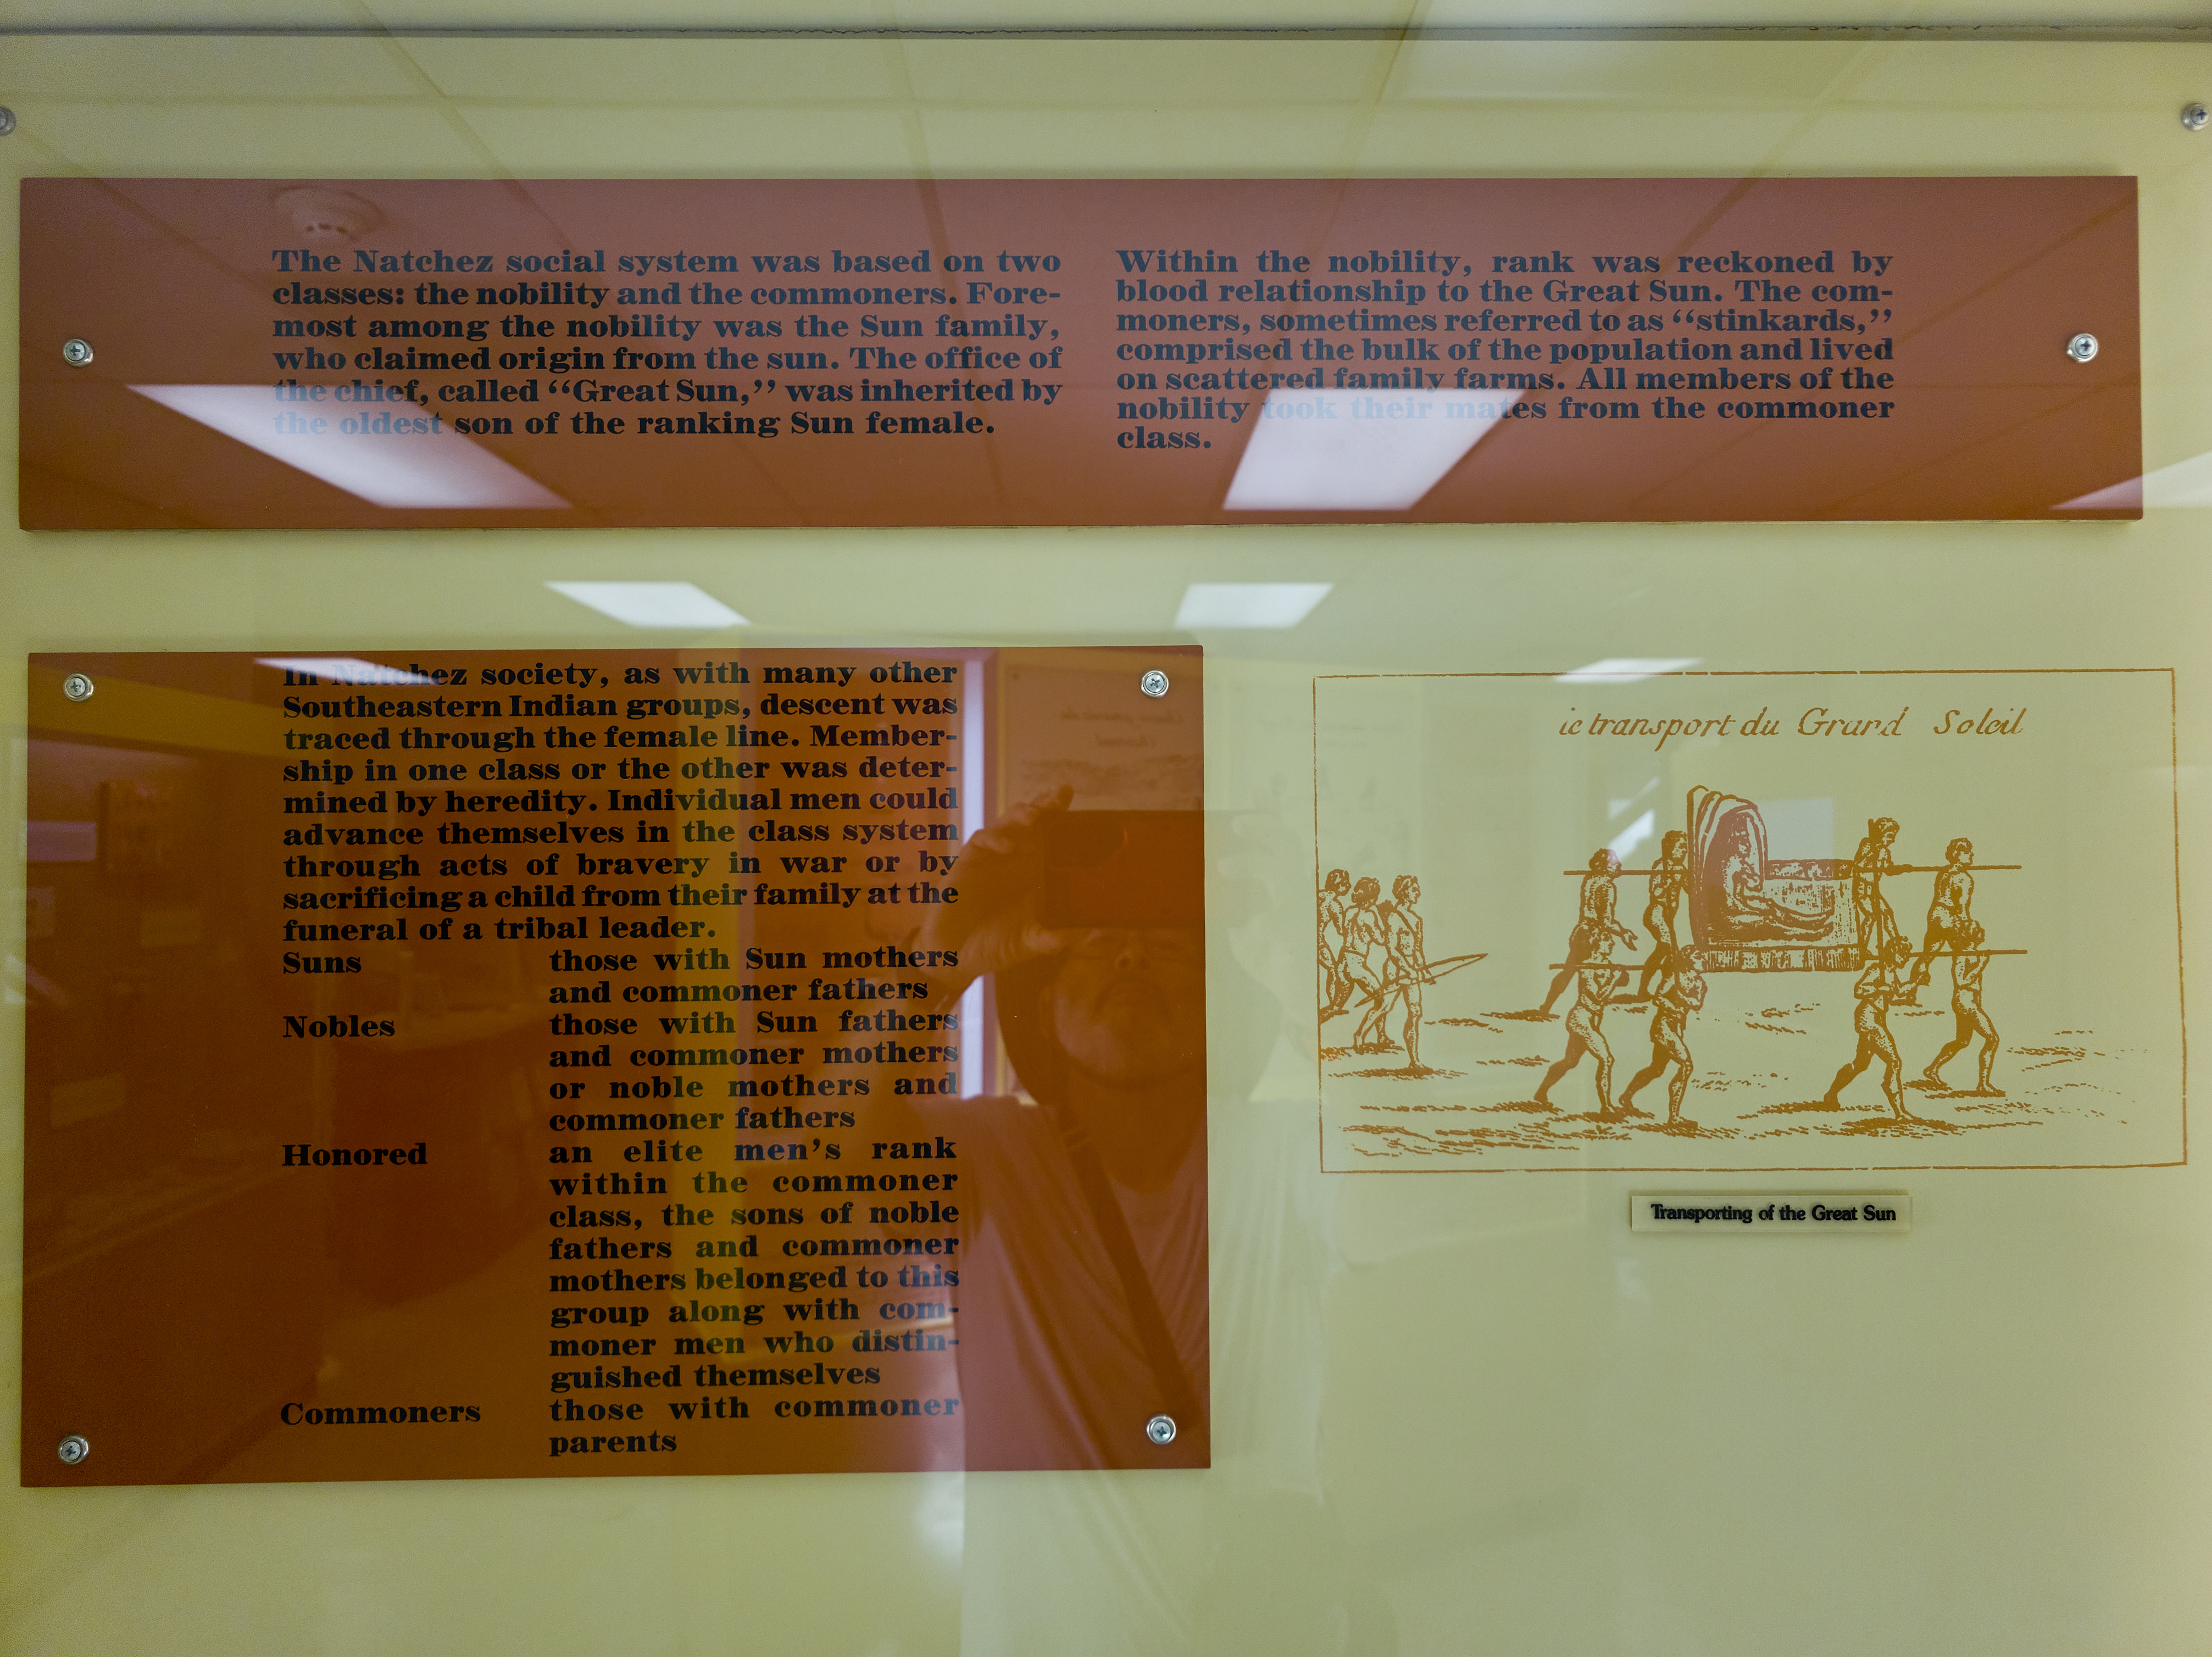 The Natchez social system was based on two
classes: the nobility and the commoners. Fore-
most among the nobility was the Sun family,
who claimed origin from the sun. The office of
the chief, called “Great Sun,” was inherited by
the oldest son of the ranking Sun female.
Within the nobility, rank was reckoned by
blood relationship to the Great Sun. The com-
moners, sometimes referred to as “stinkards,”
comprised the bulk of the population and lived
on scattered family farms. All members of the
nobility took their mates from the commoner
class.
In Natchez society, as with many other
Southeastern Indian groups, descent was
traced through the female line. Member-
ship in one class or the other was deter-
mined by heredity. Individual men could
advance themselves in the class system
through acts of bravery in war or by
sacrificing a child from their family at the
funeral of a tribal leader.
Suns those with Sun mothers
and commoner fathers
Nobles those with Sun fathers
and commoner mothers
or noble mothers and
commoner fathers
Honored an elite men's rank
within the commoner
class, the sons of noble
fathers and commoner
mothers belonged to this
group along with com-
moner men who distin-
guished themselves
Commoners those with commoner
parents
transport du Grand Soleil
Transporting of the Great Sun